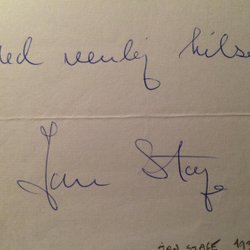 med venlig hilsen
Jan Stage
JAN STAGE 199